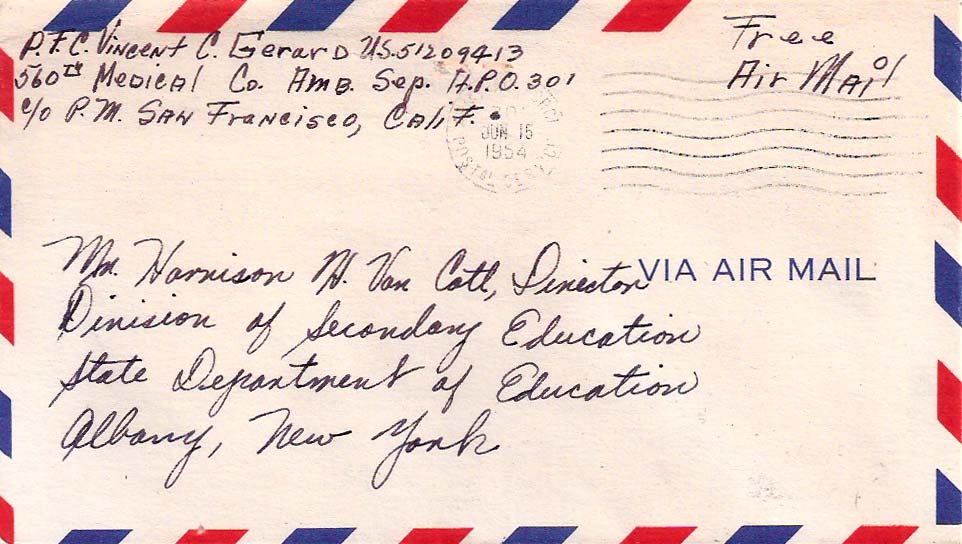 P.F.C. Vincent C. Gerard US.51209413
560th Medical Co. Amb. Sep. A.P.O. 301
c/o P.M. San Francisco, Calif.
Free
Air Mail
JUN 16
1954
POSTAL
Mr. Harrison H. Van Cott, Director
VIA AIR MAIL
Division of Secondary Education
State Department of Education
Albany, New York